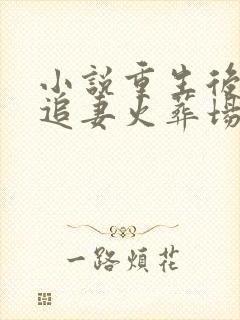 小說重生後
追妻火葬場
一路煩花